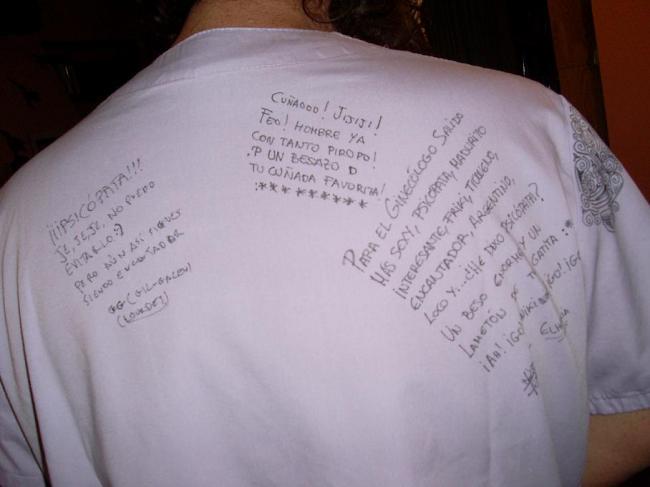 ¡¡¡PSICÓPATA!!!
JE, JE, JE, NO PUEDO
EVITARLO :)
PERO AÚN ASÍ SIGUES
SIENDO ENCANTADOR
GG (GIL-GALEN)
(LOURDES)
CUÑAOOO! JIJIJI!
FEO! HOMBRE YA
CON TANTO PIROPO!
:P UN BESAZO D
TU CUÑADA FAVORITA!
:*********
PARA EL GINECÓLOGO SALIDO
MAS SOY, PSICÓPATA, MADURITO
INTERESANTE, FRIKI, TIERNO,
ENCANTADOR, ARGENTINO,
LOCO Y... ¿HE DIXO PSICÓPATA?
UN BESO ENORME Y UN
LAMETÓN DE TU GATITA :*
¡AH! ¡GO! ¡GO! ¡GY